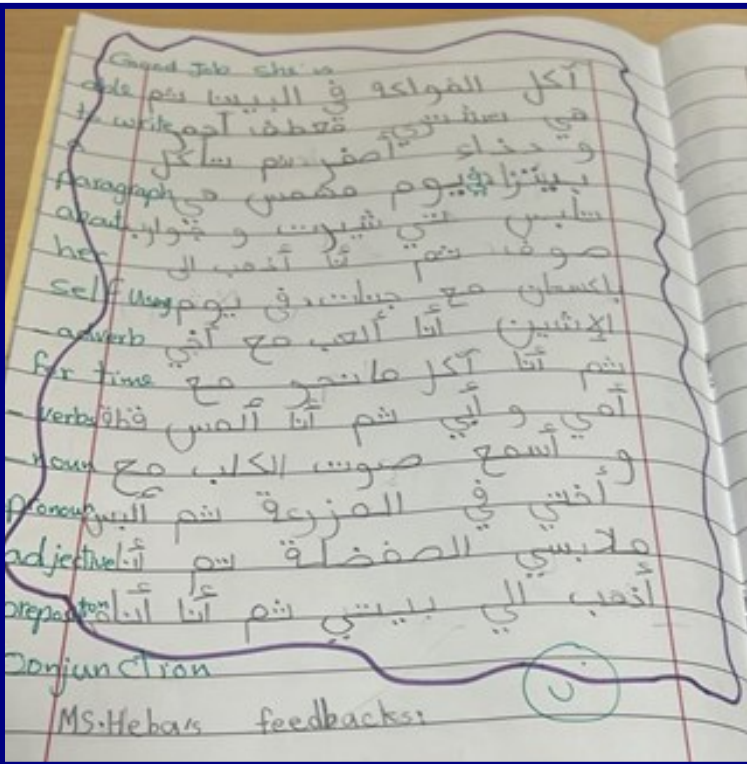 Goood Job she is
able
to write
a
paragraph
about
her
self using
- adverb
for time
- verbs
- noun
pronoun
adjective
preposition
Conjunction
آكل الفواكة في البيت ثم
هي تشتري معطف أحمر
و حذاء أصفر ثم تأكل
بيتزا يوم مشمس هي
تلبس تي شيرت و جوارب
صوف ثم أنا أذهب الى
باكستان مع في يوم
الإثنين أنا ألعب مع أخي
ثم أنا آكل مانجو مع
أمي و أبي ثم أنا ألمس قطة
و أسمع صوت الكلب مع
أختي في المزرعة ثم ألبس
ملابسي المفضلة ثم أنا
أذهب الي بييتي ثم أنا أنام
MS.Heba's feedbacks: